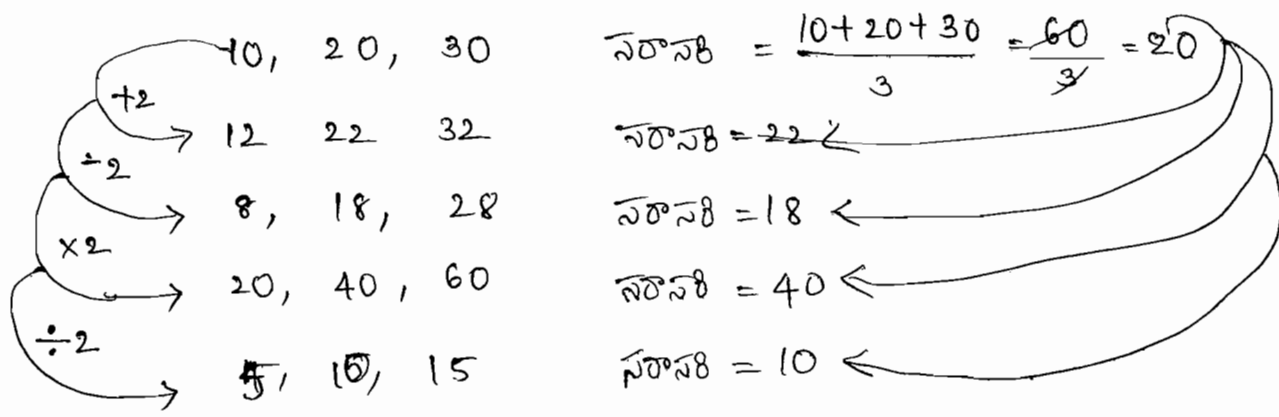 10, 20, 30 సరాసరి = 10+20+30/3 = 60/3 = 20
+2
12 22 32 సరాసరి = 22
-2
8, 18, 28 సరాసరి = 18
×2
20, 40, 60 సరాసరి = 40
÷2
5, 10, 15 సరాసరి = 10